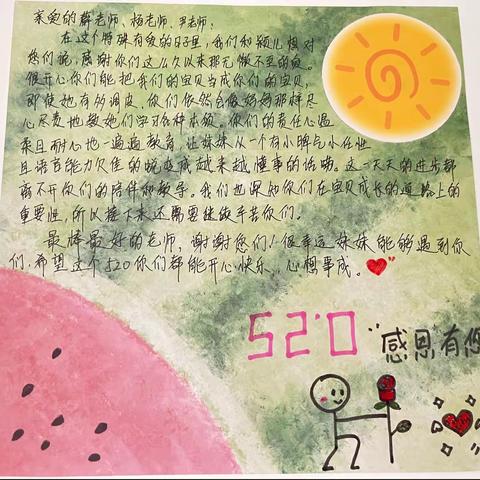 亲爱的薛老师、杨老师、尹老师:
在这个特殊有爱的日子里,我们和颖儿想对
您们说,感谢你们这么久以来那无微不至的爱。
很开心你们能把我们的宝贝当成你们的宝贝,
即使她有多调皮,你们依然会像妈妈那样尽
心尽责地教她们学习各种本领。你们的责任心温
柔且耐心地一遍遍教育,让妹妹从一个有小脾气小任性
且语言能力欠佳的蜕变成越来越懂事的话唠。这一天天的进步都
离不开你们的陪伴和教导。我们也深知你们在宝贝成长的道路上的
重要性,所以接下来还需要继续辛苦你们。
最棒最好的老师,谢谢您们!很幸运妹妹能够遇到你
们,希望这个520你们都能开心快乐、心想事成。
520
"感恩有您